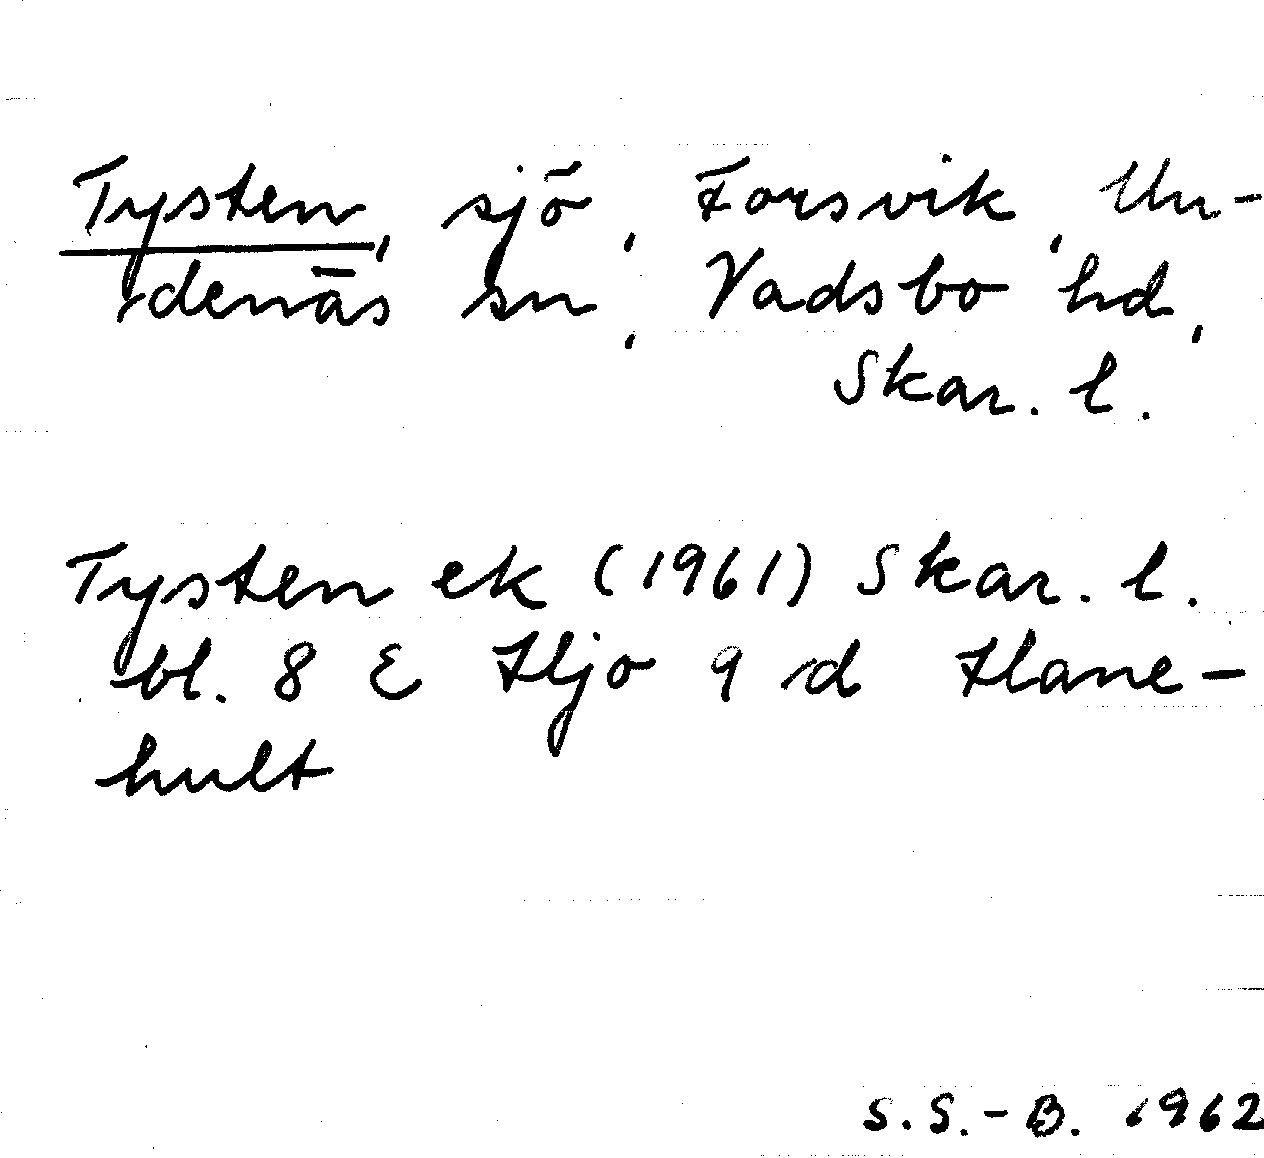 Tysten, sjö, Forsvik, Un-
denäs sn, Vadsbo hd,
Skar. l.
Tysten ek (1961) Skar. l.
bl. 8 E Hjo 9 d Hane-
hult
S.S.-B. 1962